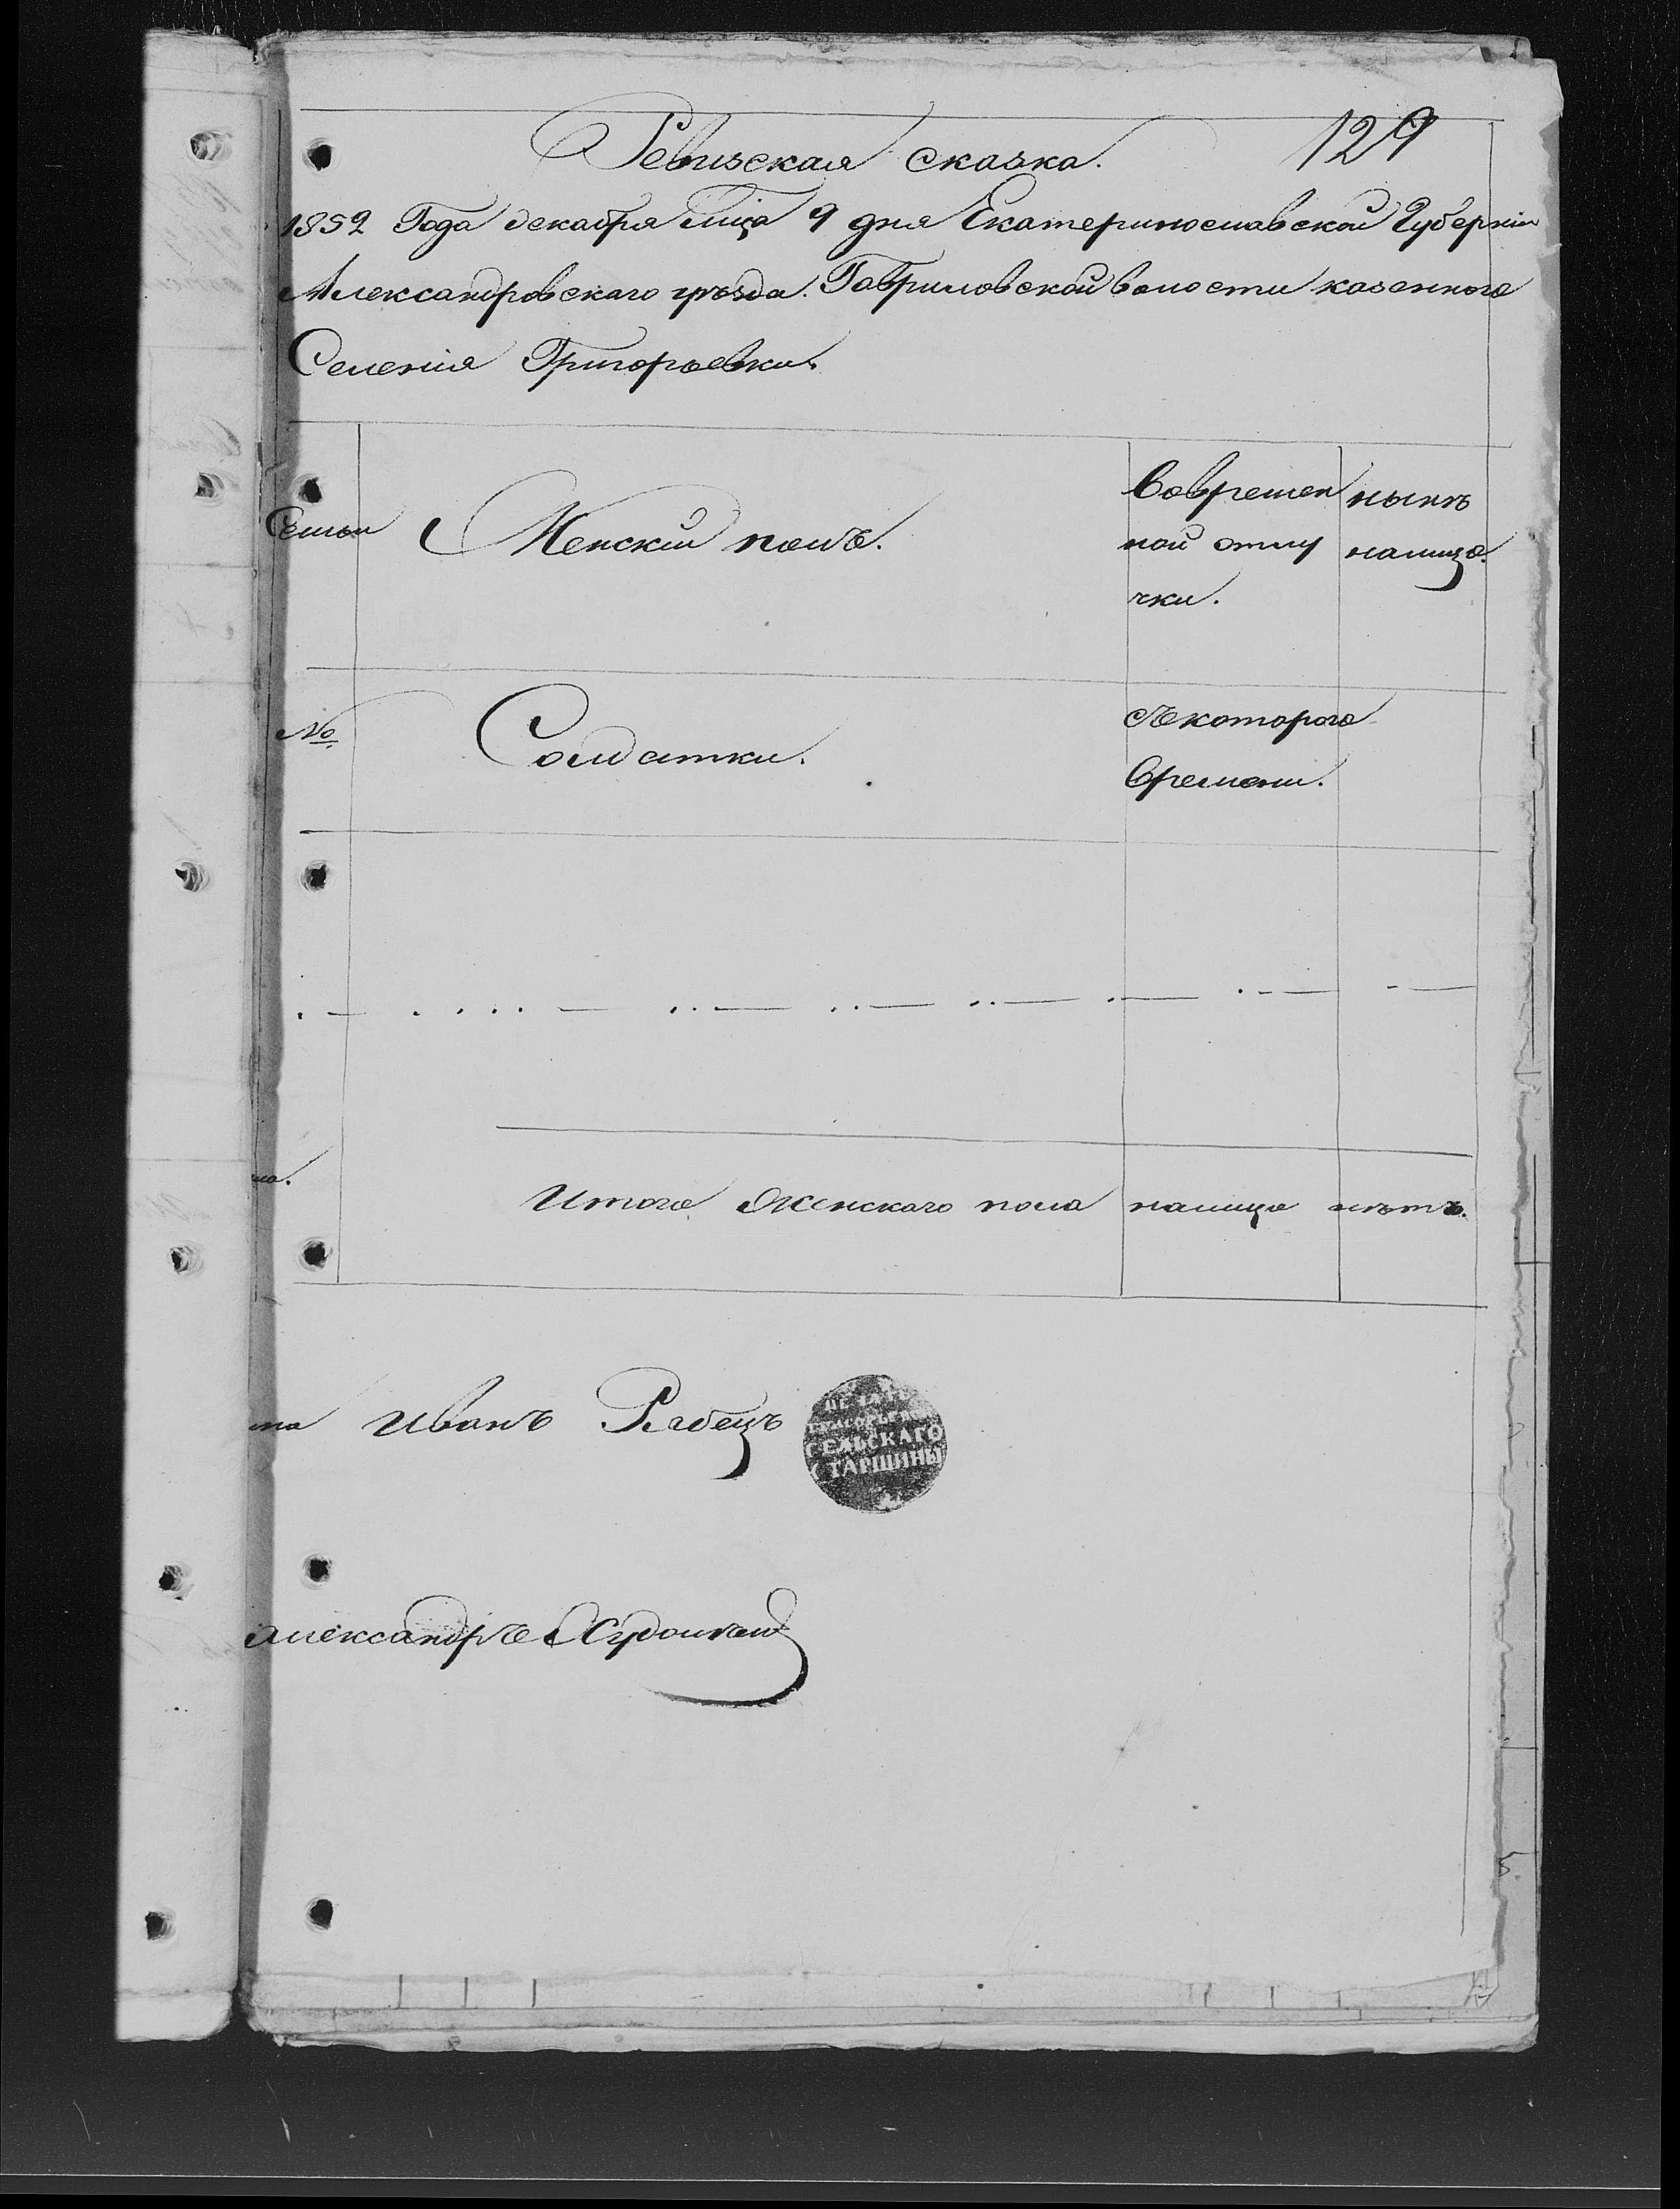 129
Ревизская сказка.
1852 Года декабря мца 9 дня Екатеринославской Губернiи
Александровскаго уѣзда. Гавриловской волости казенного
Селенiя Григорьевки.
Семьи
Женскiй полъ.
Вовремен
ной отлу
чки.
нынѣ
налицо.
№
Солдатки.
Скоторого
Времени.
Итого Женскаго пола налицо нѣтъ.
Иванъ Рябецъ
СЕЛЬСКАГО
СТАРШИНЫ
Александръ